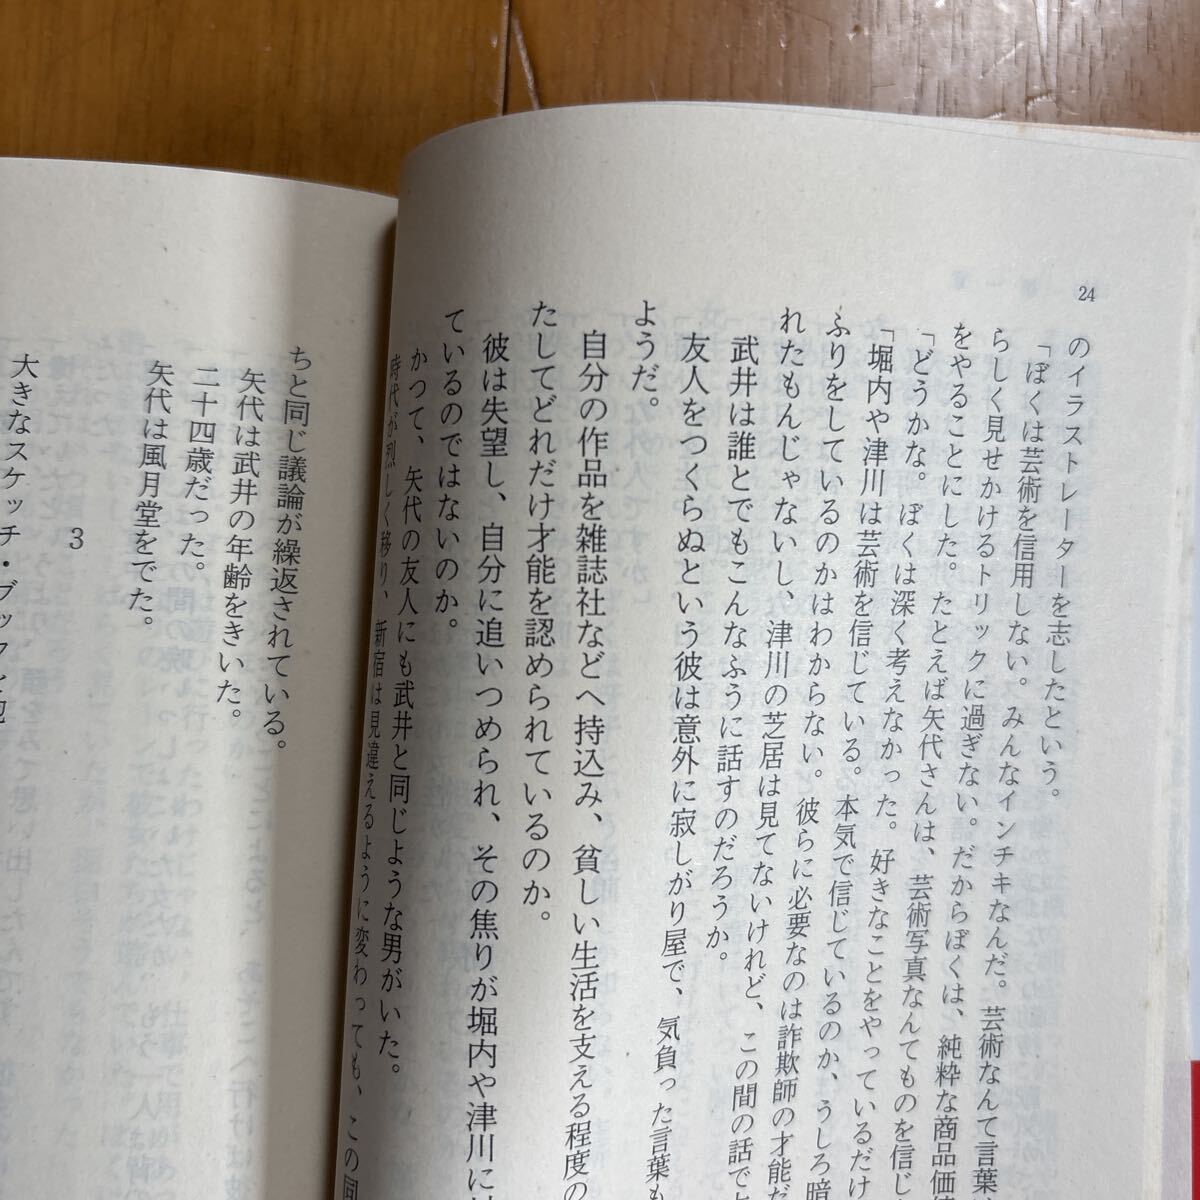 24
のイラストレーターを志したという。
「ぼくは芸術を信用しない。みんなインチキなんだ。芸術なんて言葉
らしく見せかけるトリックに過ぎない。だからぼくは、純粋な商品価値
をやることにした。たとえば矢代さんは、芸術写真なんてものを信じ
「どうかな。ぼくは深く考えなかった。好きなことをやっているだけ
「堀内や津川は芸術を信じている。本気で信じているのか、うしろ暗
ふりをしているのかはわからない。彼らに必要なのは詐欺師の才能だ
れたもんじゃないし、津川の芝居は見てないけれど、この間の話で
武井は誰とでもこんなふうに話すのだろうか。
友人をつくらぬという彼は意外に寂しがり屋で、気負った言葉も
ようだ。
自分の作品を雑誌社などへ持込み、貧しい生活を支える程度の
たしてどれだけ才能を認められているのか。
彼は失望し、自分に追いつめられ、その焦りが堀内や津川に
ているのではないのか。
かつて、矢代の友人にも武井と同じような男がいた。
時代が烈しく移り、新宿は見違えるように変わっても、この同
ちと同じ議論が繰返されている。
矢代は武井の年齢をきいた。
二十四歳だった。
矢代は風月堂をでた。
3
大きなスケッチ・ブックを抱